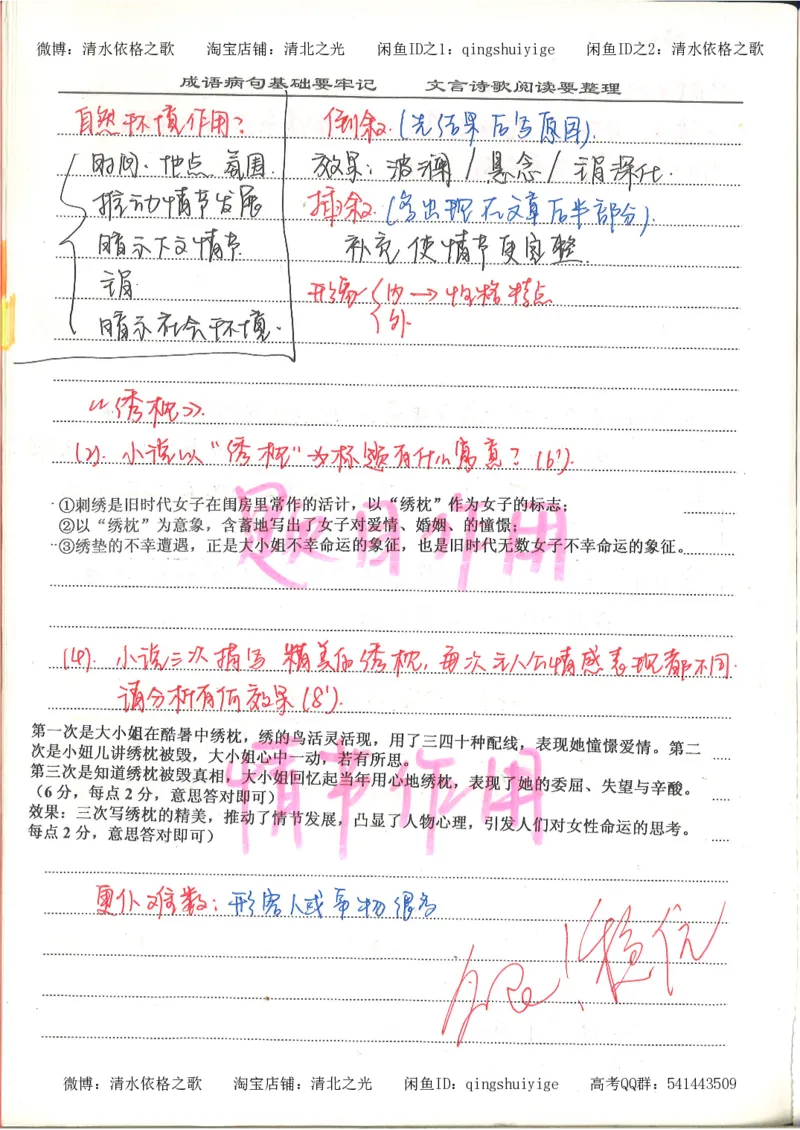 微博：清水依格之歌 淘宝店铺：清北之光 闲鱼ID之1：qingshuiyige 闲鱼ID之2：清水依格之歌
成语病句基础要牢记 文言诗歌阅读要整理
自然环境作用？
时间、地点、氛围
推动情节发展
暗示下文情节
主旨
暗示社会环境.
倒叙.（先结果后写原因）.
效果：波澜/悬念/主旨深化.
插叙.（多出现在文章后半部分）.
补充，使情节更完整.
形象 内→性格特点
外.
《绣枕》.
(2). 小说以“绣枕”为标题有什么寓意？(6').
①刺绣是旧时代女子在闺房里常作的活计，以“绣枕”作为女子的标志；
②以“绣枕”为意象，含蓄地写出了女子对爱情、婚姻、的憧憬；
③绣垫的不幸遭遇，正是大小姐不幸命运的象征，也是旧时代无数女子不幸命运的象征。
题目作用
(4). 小说三次描写精美的绣枕，每次主人公情感表现都不同.
请分析有何效果(8').
第一次是大小姐在酷暑中绣枕，绣的鸟活灵活现，用了三四十种配线，表现她憧憬爱情。第二
次是小妞儿讲绣枕被毁，大小姐心中一动，若有所思。
第三次是知道绣枕被毁真相，大小姐回忆起当年用心地绣枕，表现了她的委屈、失望与辛酸。
（6 分，每点 2 分，意思答对即可）
效果：三次写绣枕的精美，推动了情节发展，凸显了人物心理，引发人们对女性命运的思考。
每点 2 分，意思答对即可）
情节作用
更仆难数：形容人或事物很多
微博：清水依格之歌 淘宝店铺：清北之光 闲鱼ID：qingshuiyige 高考QQ群：541443509